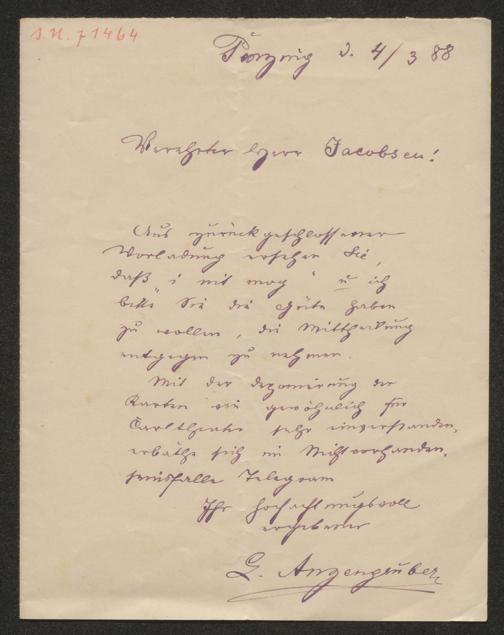 I.N. 71464
Penzing d. 4/3 88
Verehrter Herr Jacobsen!
Aus zurückgeschlossener
Vorladung ersehen Sie,
daß „i nit mag" u ich
bitte Sie die Güte haben
zu wollen, die Mittheilung
entgegen zu nehmen.
Mit der Deponirung der
Karten wie gewöhnlich für
Carltheater sehr einverstanden,
erbäthe sich im Nichtvorhanden-
seinsfalle Telegram
Ihr hochachtungsvoll
ergebener
L. Anzengruber